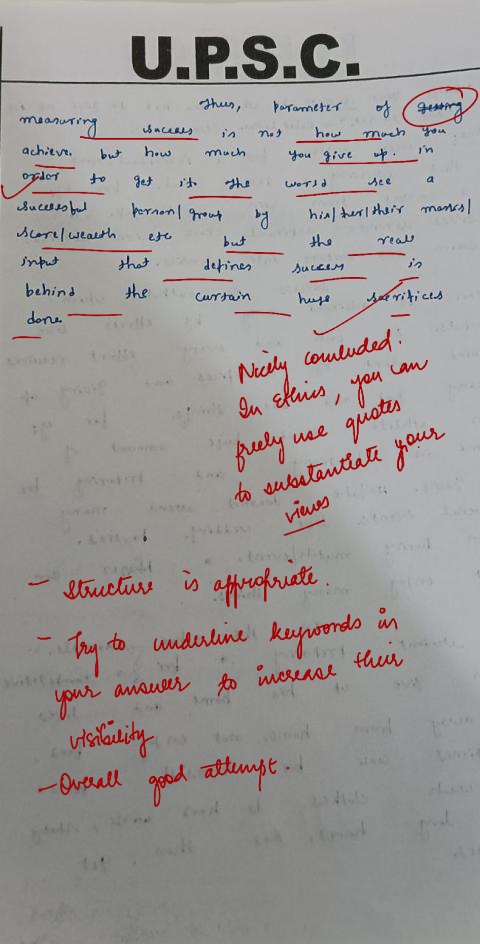 U.P.S.C.
Thus, parameter of
measuring success is not how much you
achieve, but how much you give up. in
order to get it. the world see a
successful person/group by his/her/their marks/
score/wealth etc but the real
input that defines success is
behind the curtain huge sacrifices
done
Nicely concluded.
In Ethics, you can
freely use quotes
to substantiate your
views
- Structure is appropriate.
- Try to underline keywords in
your answer to increase their
visibility
- Overall good attempt.